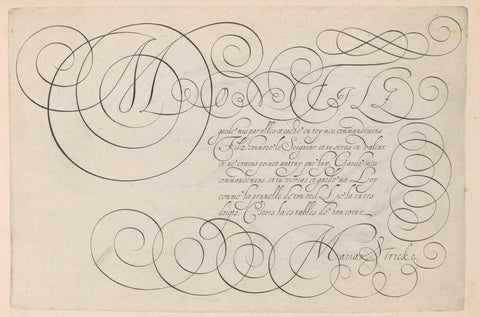 MON FILZ
garde mes parolles et cache en toy mes commandemens
Filz honnore le Seigneur et tu seras en valeur
et ne crains point autruy que luy. Garde mes
commandemens et tu vivras et garde ma Loy
comme la prunelle de ton oeil. Lie la en tes
doigts. Escris la es tables de ton coeur.
Maria Stricke.